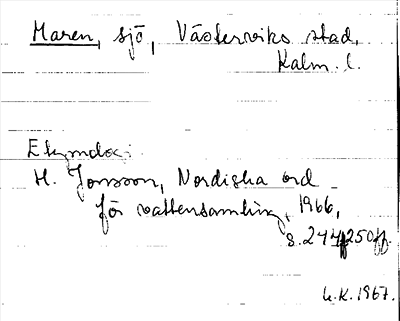 Maren, sjö, Västerviks stad,
Kalm. l.
Etymologi:
H. Jonsson, Nordiska ord
för vattensamling, 1966,
s. 244, 250 ff.
U.K. 1967.